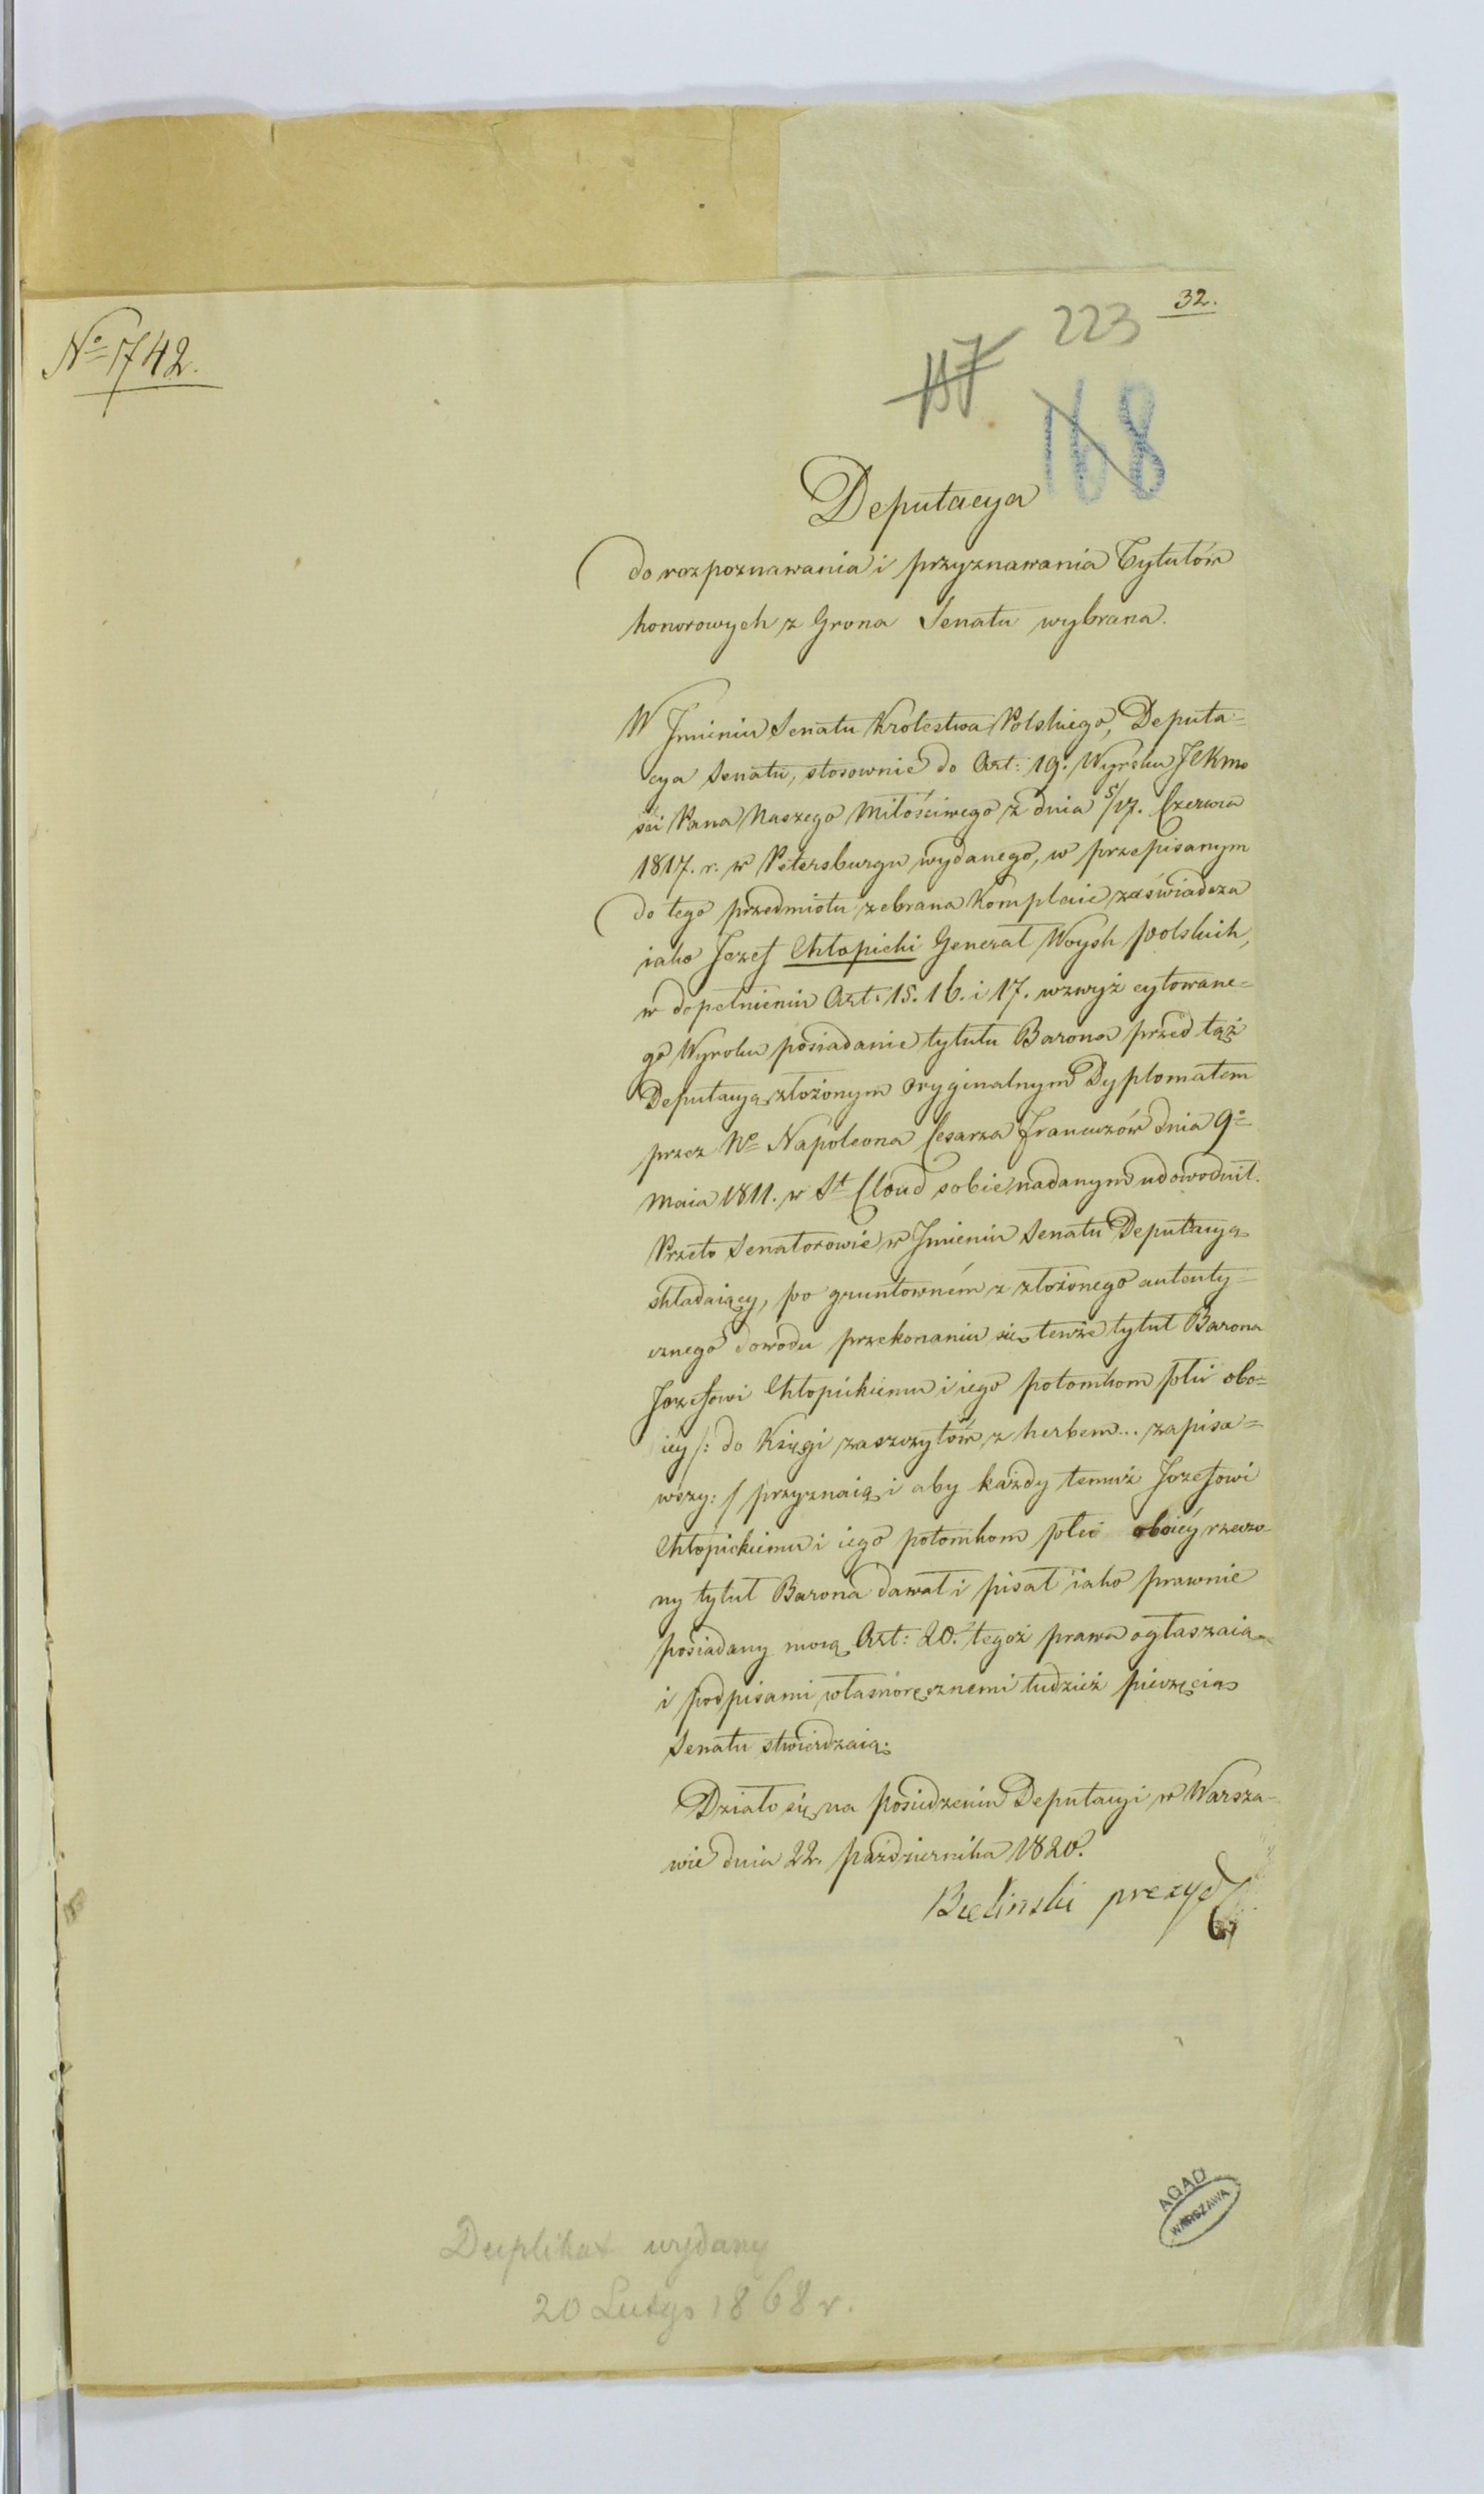 32.
223
117
168
No 1742.
Deputacya
do rozpoznawania i przyznawania Tytułów
honorowych z Grona Senatu wybrana.
W Jmieniu Senatu Krolestwa Polskiego, Deputa=
cya Senatu, stosownie do Art: 19. Wyroku JCKmo
ści Pana Naszego Miłościwego z dnia 5/17. Czerwca
1817. r. w Petersburgu wydanego, w przepisanym
do tego przedmiotu zebrana Komplecie zaświadcza
iako Jozef Chłopicki Generał Woysk polskich,
w dopełnieniu Art: 15. 16. i 17. wzwyż cytowane=
go Wyroku posiadanie tytułu Barona przed tąż
Deputacyą złożonym oryginalnym Dyplomatem
przez No Napoleona Cesarza Francuzów dnia 9o
Maia 1811. w St Cloud sobie nadanym udowodnił.
Przeto Senatorowie w Jmieniu Senatu Deputacyą
składaiący, po gruntowném z złożonego autenty=
cznego dowodu przekonaniu się tenże tytuł Barona
Jozefowi Chłopickiemu i iego potomkom płci obo=
iey /: do Księgi zaszczytów z herbem... zapisa=
wszy: / przyznaią i aby każdy temuż Jozefowi
Chłopickiemu i iego potomkom płci oboiéy rzeczo=
ny tytuł Barona dawał i pisał iako prawnie
posiadany mocą Art: 20. tegoż prawa ogłaszaią
i podpisami własnoręcznemi tudzież pieczęcią
Senatu stwierdzaią.
Działo się na posiedzeniu Deputacyi w Warsza=
wie dnia 22. października 1820.
Bielinski prezyd
AGAD
WARSZAWA
Duplikat wydany
20 Lutego 1868 r.